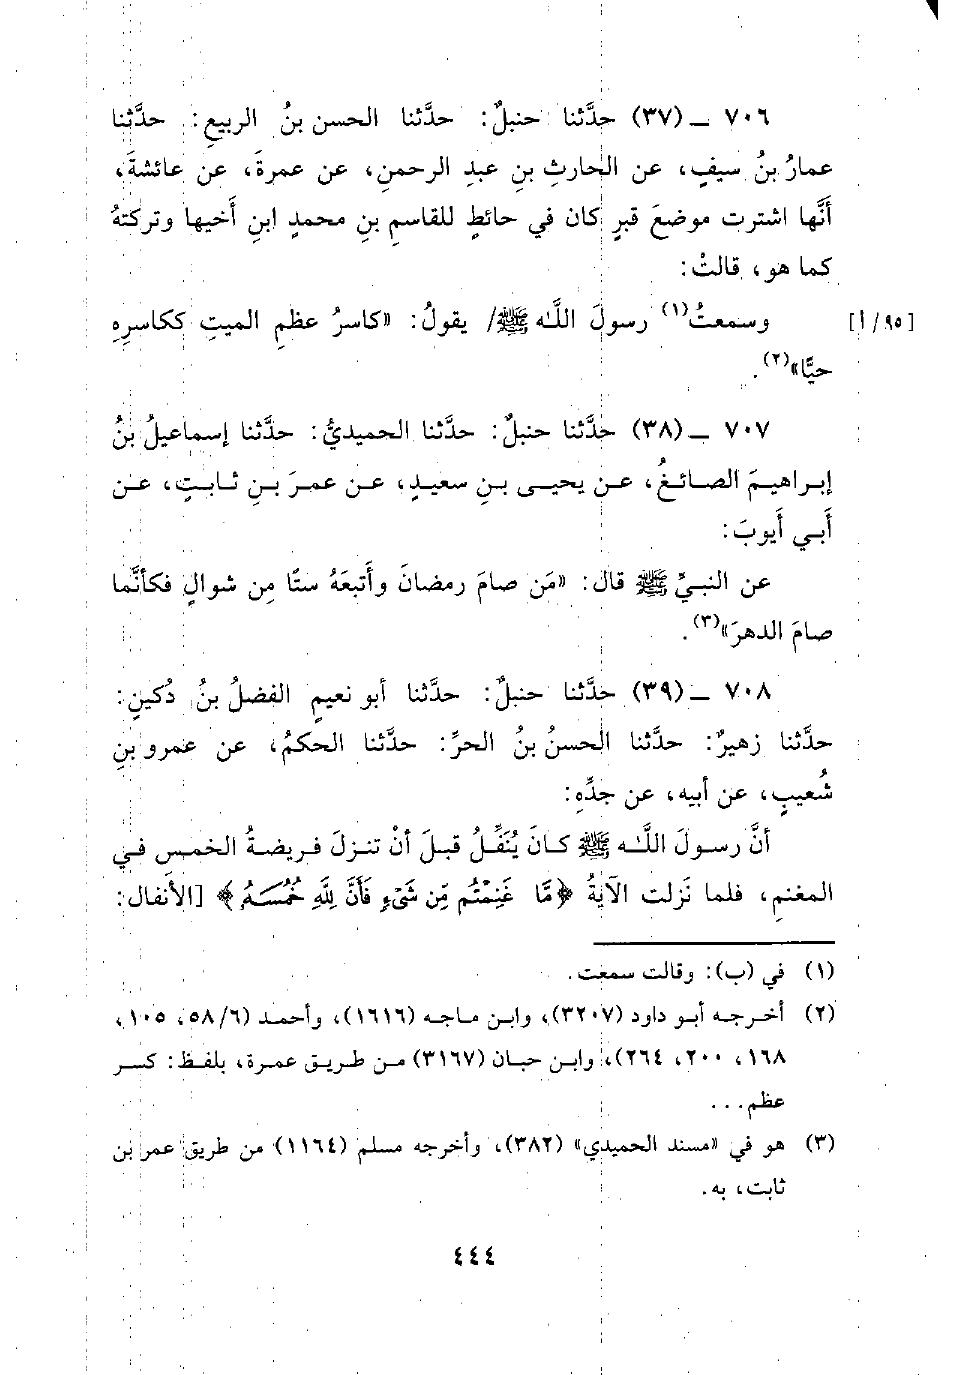 ٧٠٦ ــ (٣٧) حدَّثنا حنبلٌ: حدَّثنا الحسن بنُ الربيعِ: حدَّثنا
عمارُ بنُ سيفٍ، عن الحارثِ بنِ عبدِ الرحمنِ، عن عمرةَ، عن عائشةَ،
أنَّها اشترت موضعَ قبرٍ كان في حائطٍ للقاسمِ بنِ محمدٍ ابنِ أَخيها وتركتهُ
كما هو، قالتْ:
وسمعتُ(١) رسولَ اللَّـه ﷺ/ يقولُ: «كاسرُ عظمِ الميتِ ككاسرِهِ [٩٥/أ]
حيًّا»(٢).
٧٠٧ ــ (٣٨) حدَّثنا حنبلٌ: حدَّثنا الحميديُّ: حدَّثنا إسماعيلُ بنُ
إبراهيمَ الصائغُ، عن يحيى بنِ سعيدٍ، عن عمرَ بنِ ثابتٍ، عن
أَبي أَيوبَ:
عن النبيِّ ﷺ قال: «مَن صامَ رمضانَ وأَتبعَهُ ستًا مِن شوالٍ فكأنَّما
صامَ الدهرَ»(٣).
٧٠٨ ــ (٣٩) حدَّثنا حنبلٌ: حدَّثنا أبو نعيمٍ الفضلُ بنُ دُكينٍ:
حدَّثنا زهيرٌ: حدَّثنا الحسنُ بنُ الحرِّ: حدَّثنا الحكمُ، عن عمرو بنِ
شُعيبٍ، عن أبيه، عن جدِّهِ:
أنَّ رسولَ اللَّـه ﷺ كانَ يُنَفِّلُ قبلَ أنْ تنزلَ فريضةُ الخمسِ في
المغنمِ، فلما نَزلت الآيةُ ﴿مَّا غَنِمْتُم مِّن شَيْءٍ فَأَنَّ لِلَّهِ خُمُسَهُ﴾ [الأنفال:
(١) في (ب): وقالت سمعت.
(٢) أخرجه أبو داود (٣٢٠٧)، وابن ماجه (١٦١٦)، وأحمد (٥٨/٦، ١٠٥،
١٦٨، ٢٠٠، ٢٦٤)، وابن حبان (٣١٦٧) من طريق عمرة، بلفظ: كسر
عظم...
(٣) هو في «مسند الحميدي» (٣٨٢)، وأخرجه مسلم (١١٦٤) من طريق عمر بن
ثابت، به.
٤٤٤